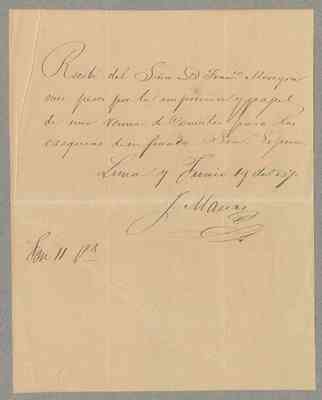 Recibí del Señor D. Franco Moreyra
once pesos por la impresion y papel
de una resma de esquelas para las
exequias de su finada Sra. Esposa
Lima y Junio 19 del 57.
J. Macias
Son 11 ps